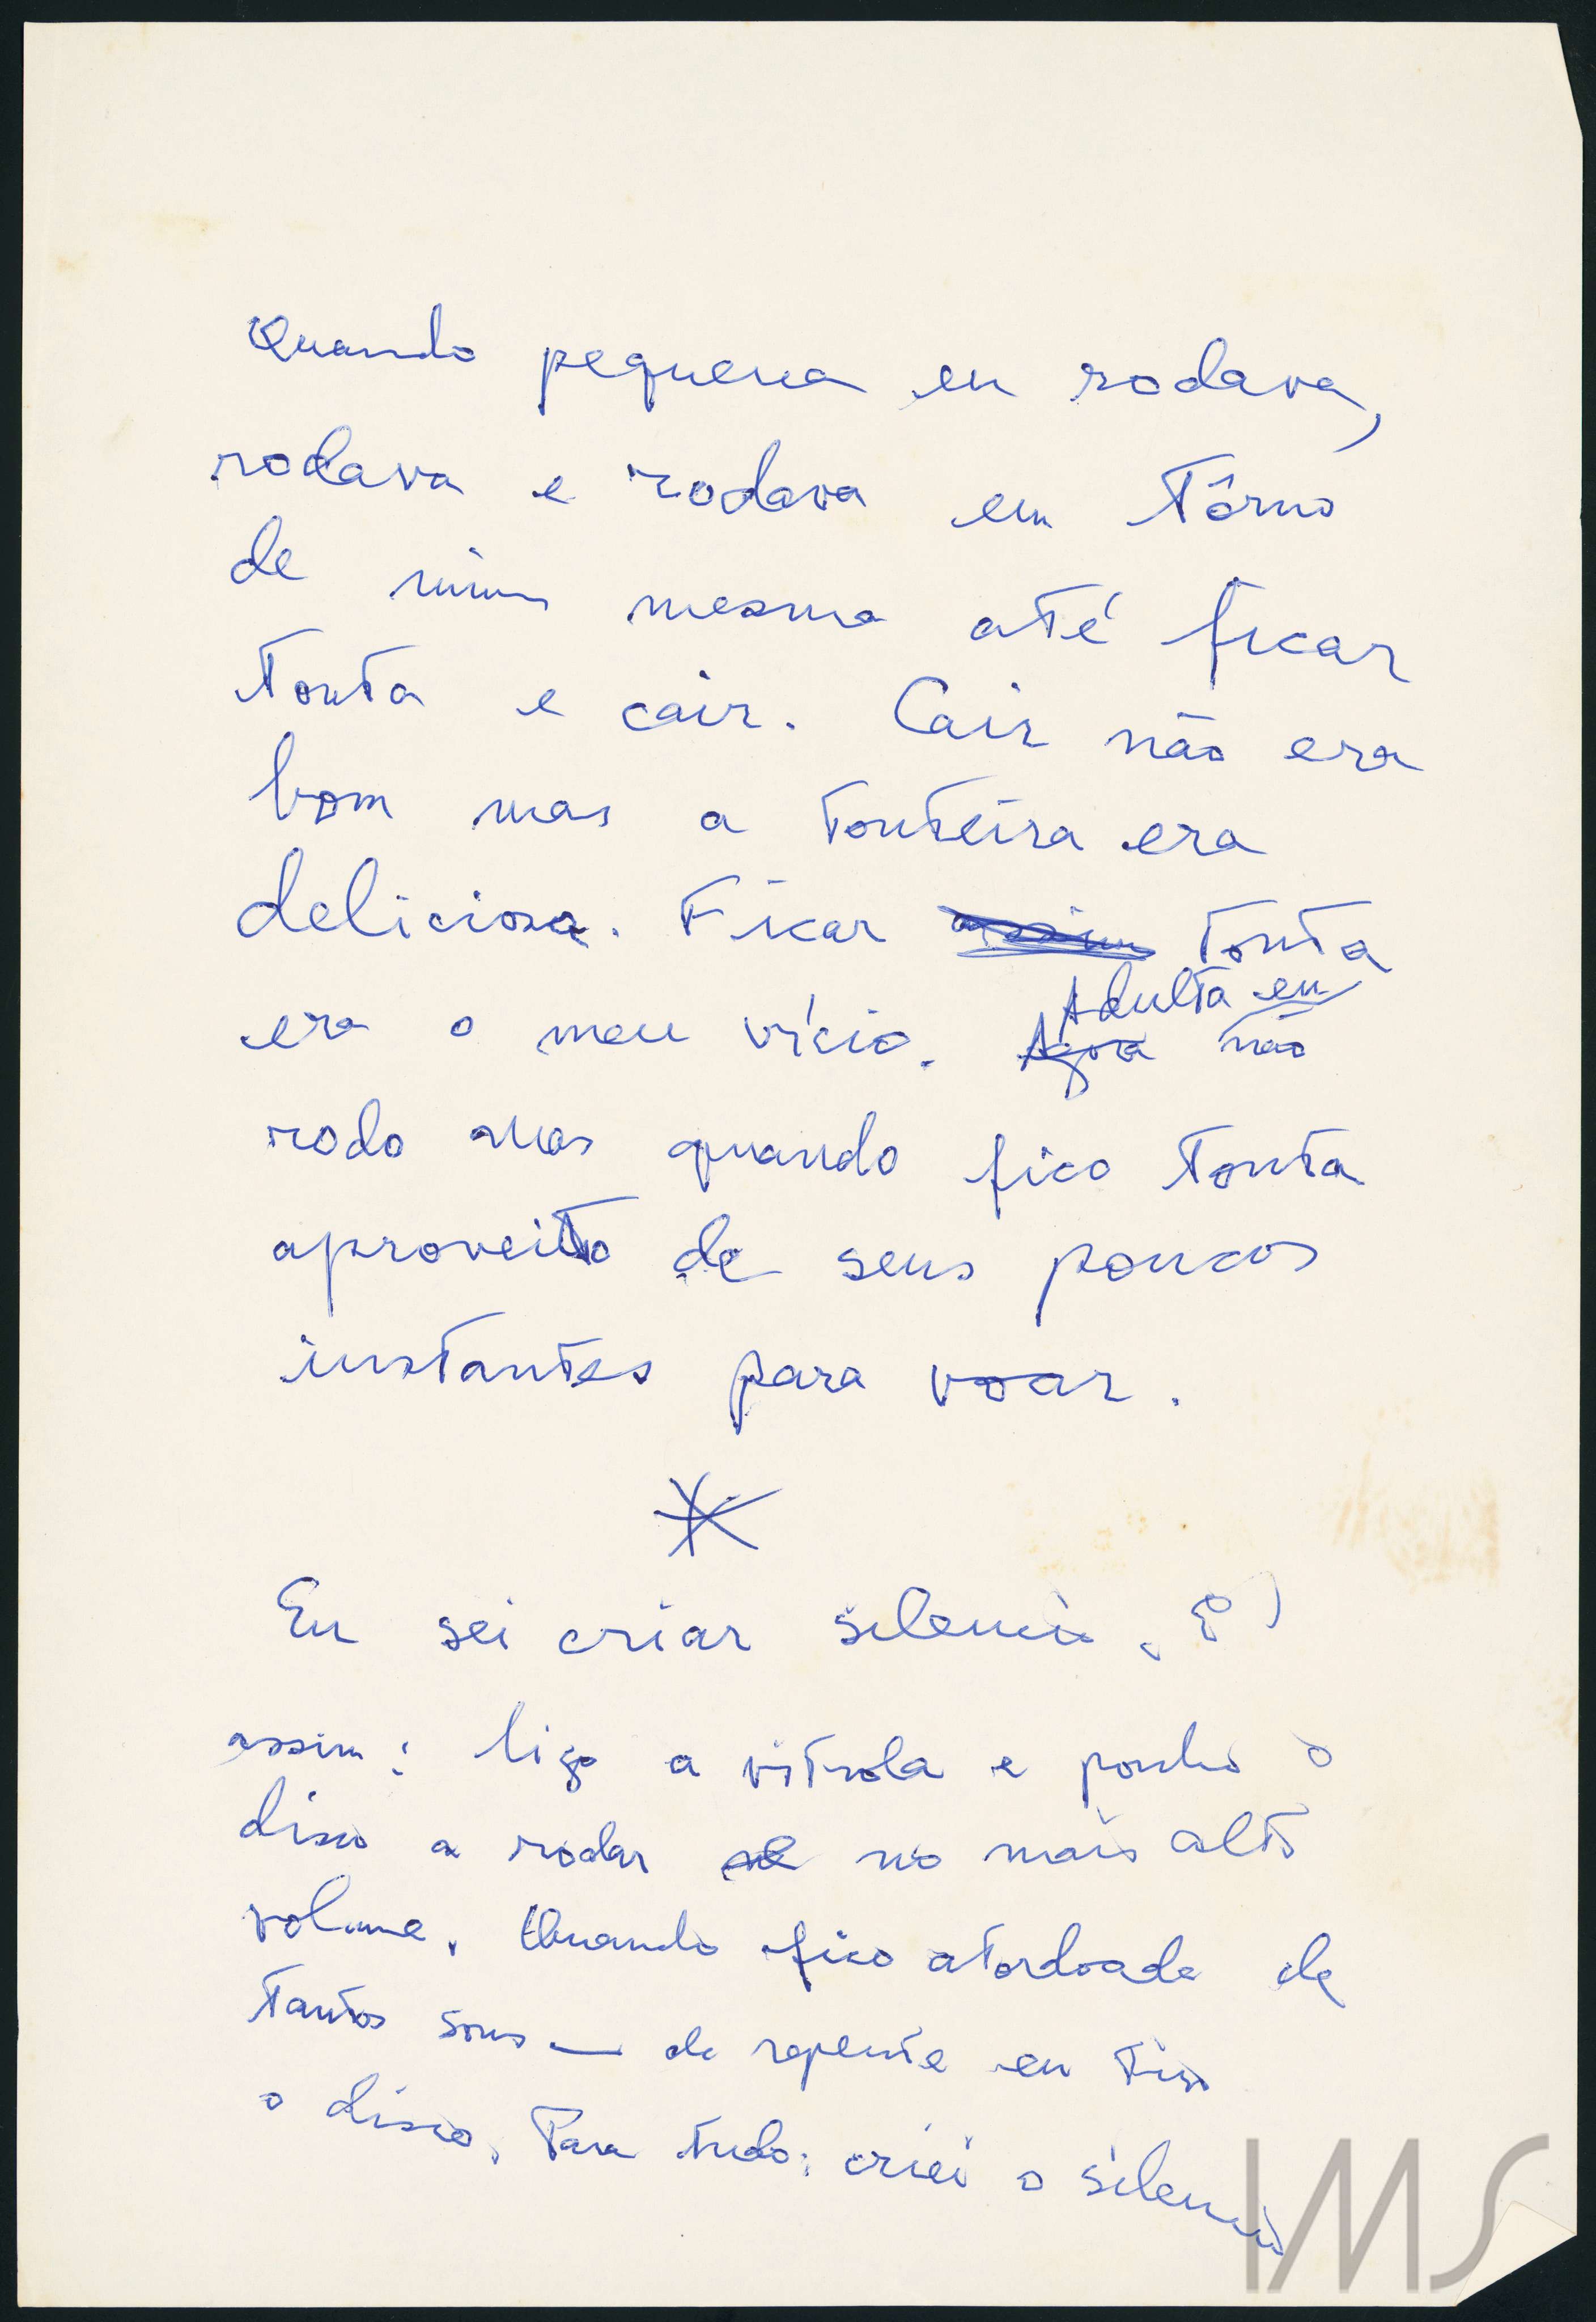 Quando pequena eu rodava,
rodava e rodava em tôrno
de mim mesma até ficar
tonta e cair. Cair não era
bom mas a tonteira era
deliciosa. Ficar assim tonta
Adulta eu
era o meu vício. Agora não
rodo mas quando fico tonta
aproveito de seus poucos
instantes para voar.
*
Eu sei criar silencio. É
assim: ligo a vitrola e ponho o
disco a rodar no mais alto
volume. Quando fico atordoada de
tantos sons — de repente eu tiro
o disco. Para tudo: criei o silencio
IMS